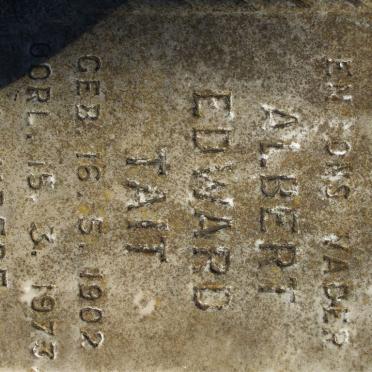 EN ONS VADER
ALBERT
EDWARD
TAIT
GEB. 16. 5. 1902
OORL. 15. 3. 1973